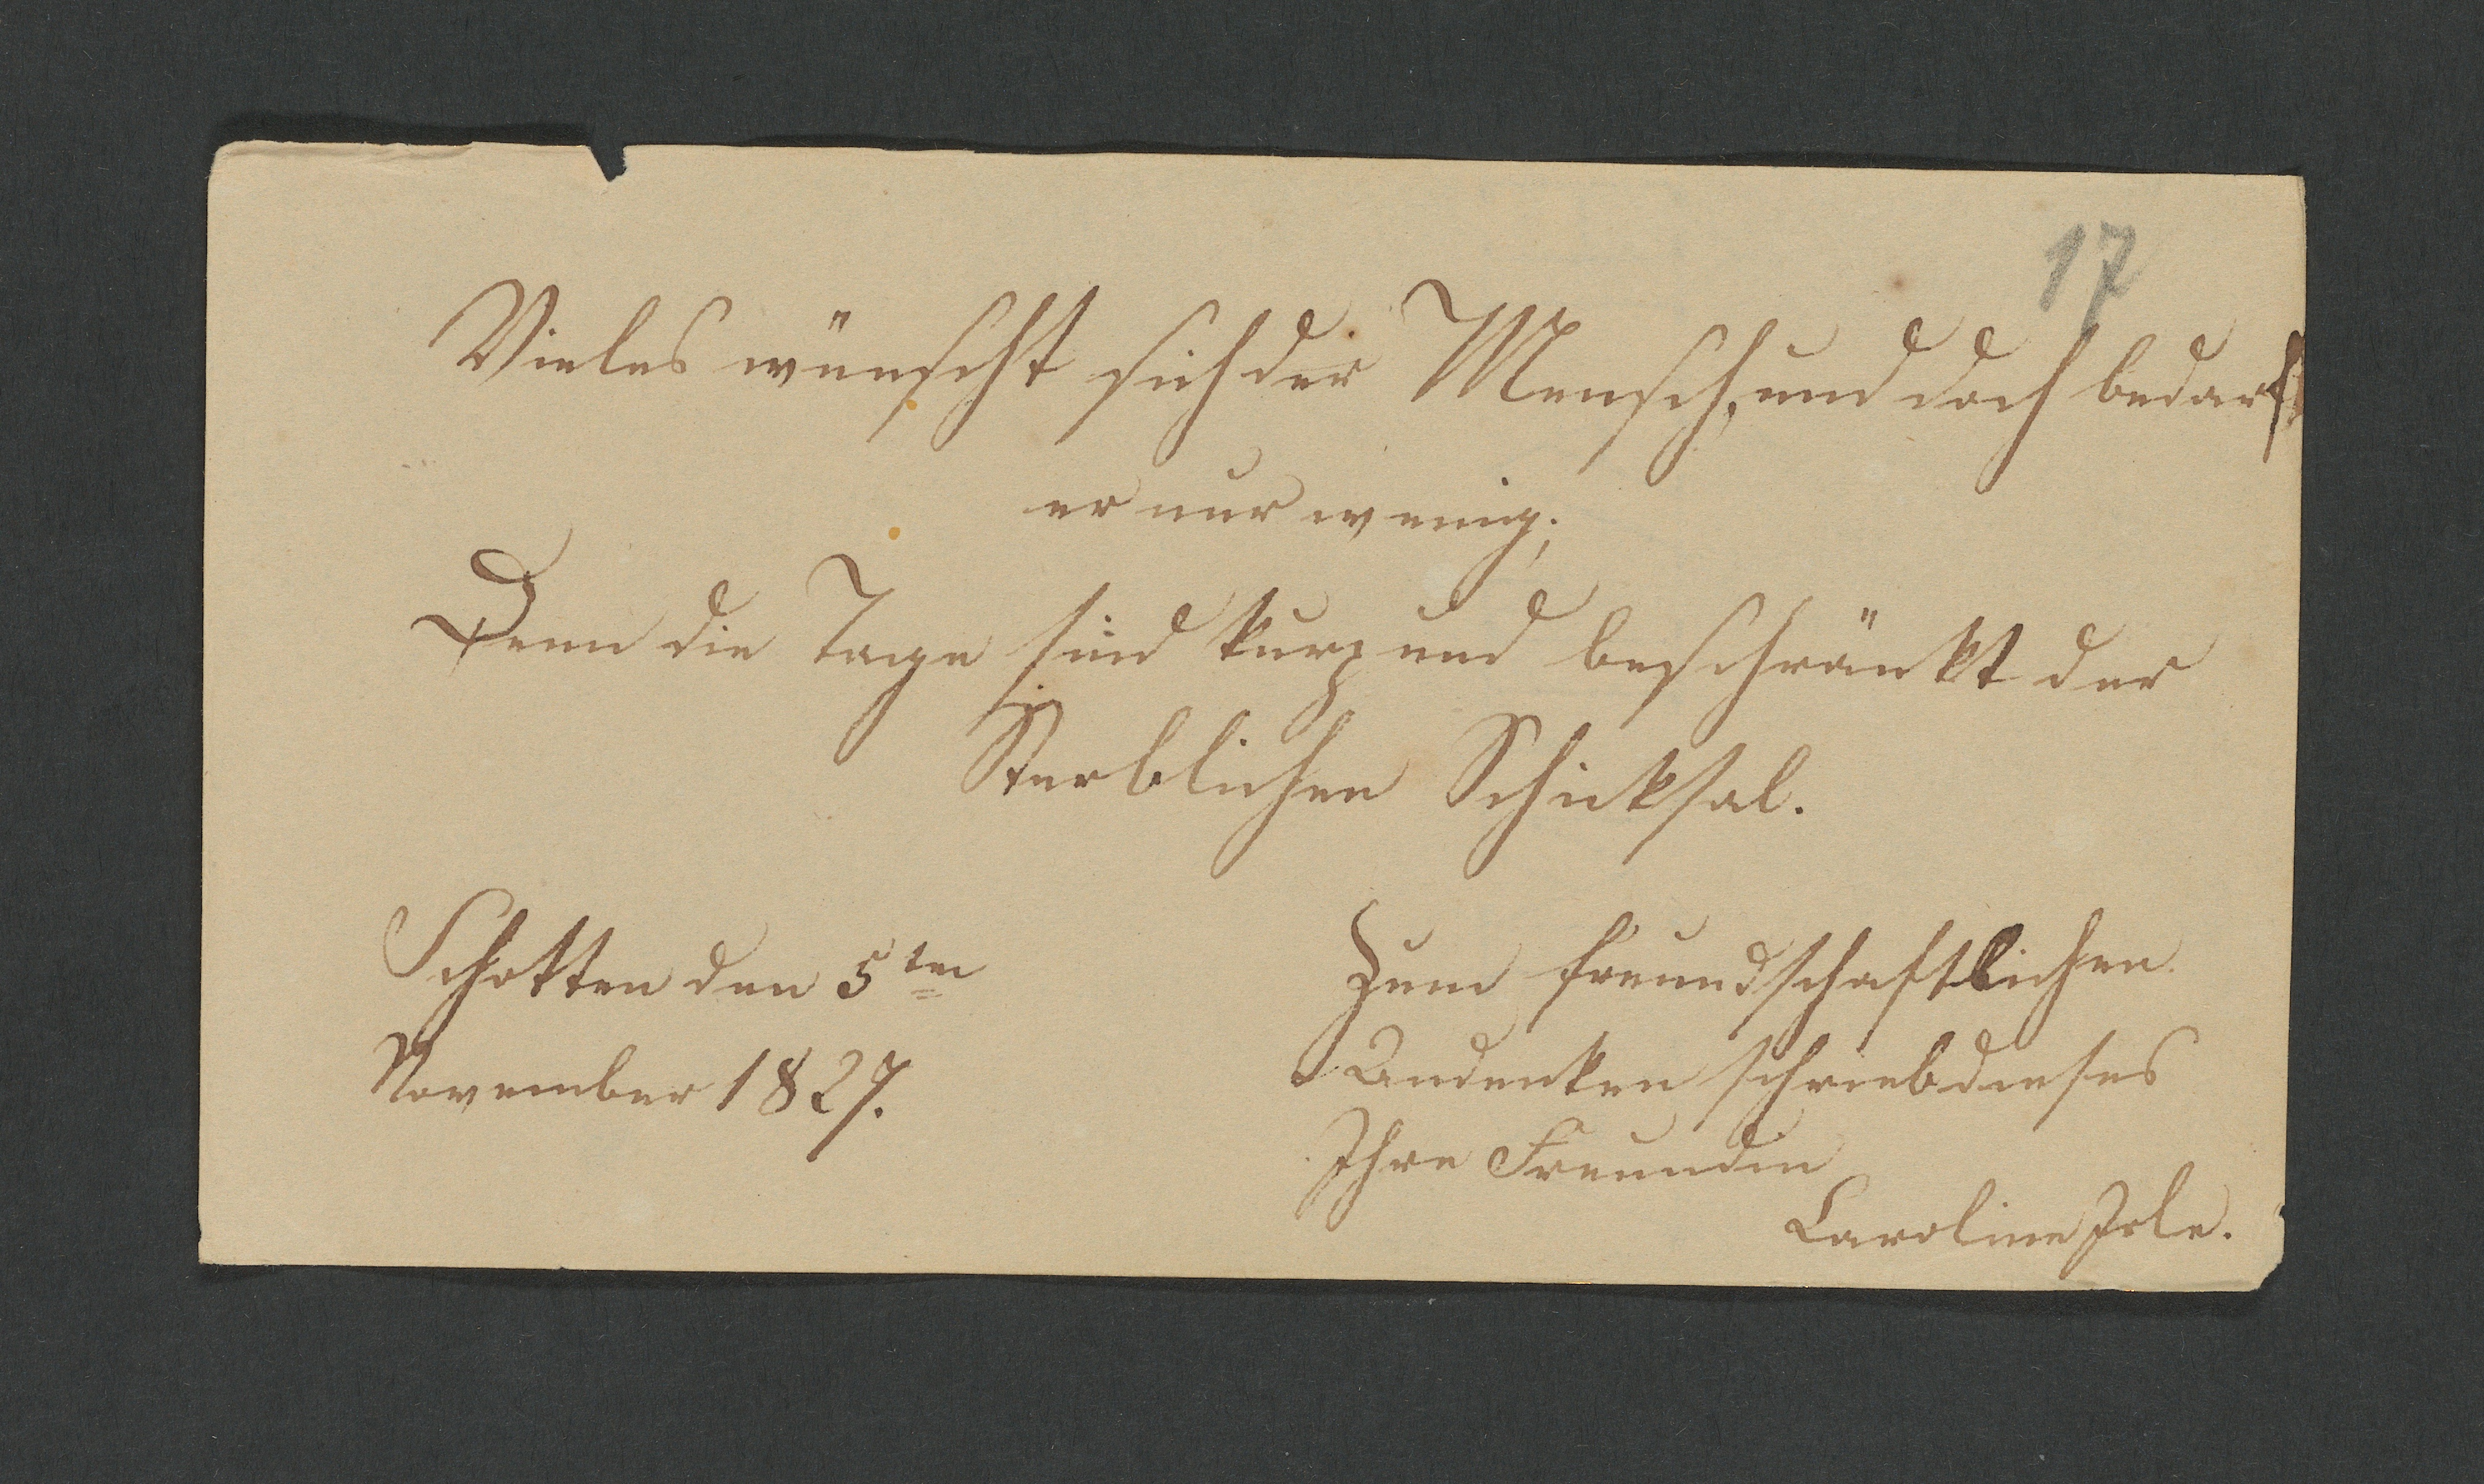 17
Vieles wünscht sich der Mensch, und doch bedarf
er nur wenig;
Denn die Tage sind kurz und beschränkt der
Sterblichen Schicksal.
Schotten den 5ten
November 1827.
Zum freundschaftlichen
Andenken schrieb dieses
Ihre Freundin
Caroline Irle.